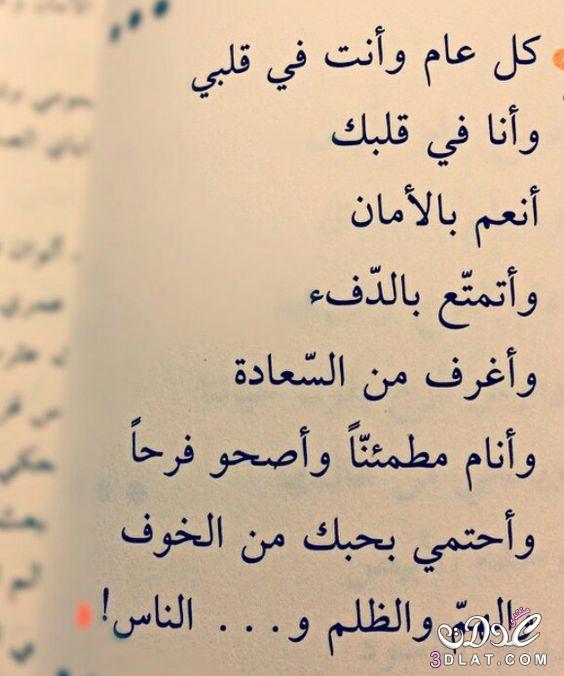 كل عام وأنت في قلبي
وأنا في قلبك
أنعم بالأمان
وأتمتّع بالدّفء
وأغرف من السّعادة
وأنام مطمئنّاً وأصحو فرحاً
وأحتمي بحبك من الخوف
والهمّ والظلم و... الناس!
منتدى عدلات
3DLAT.COM